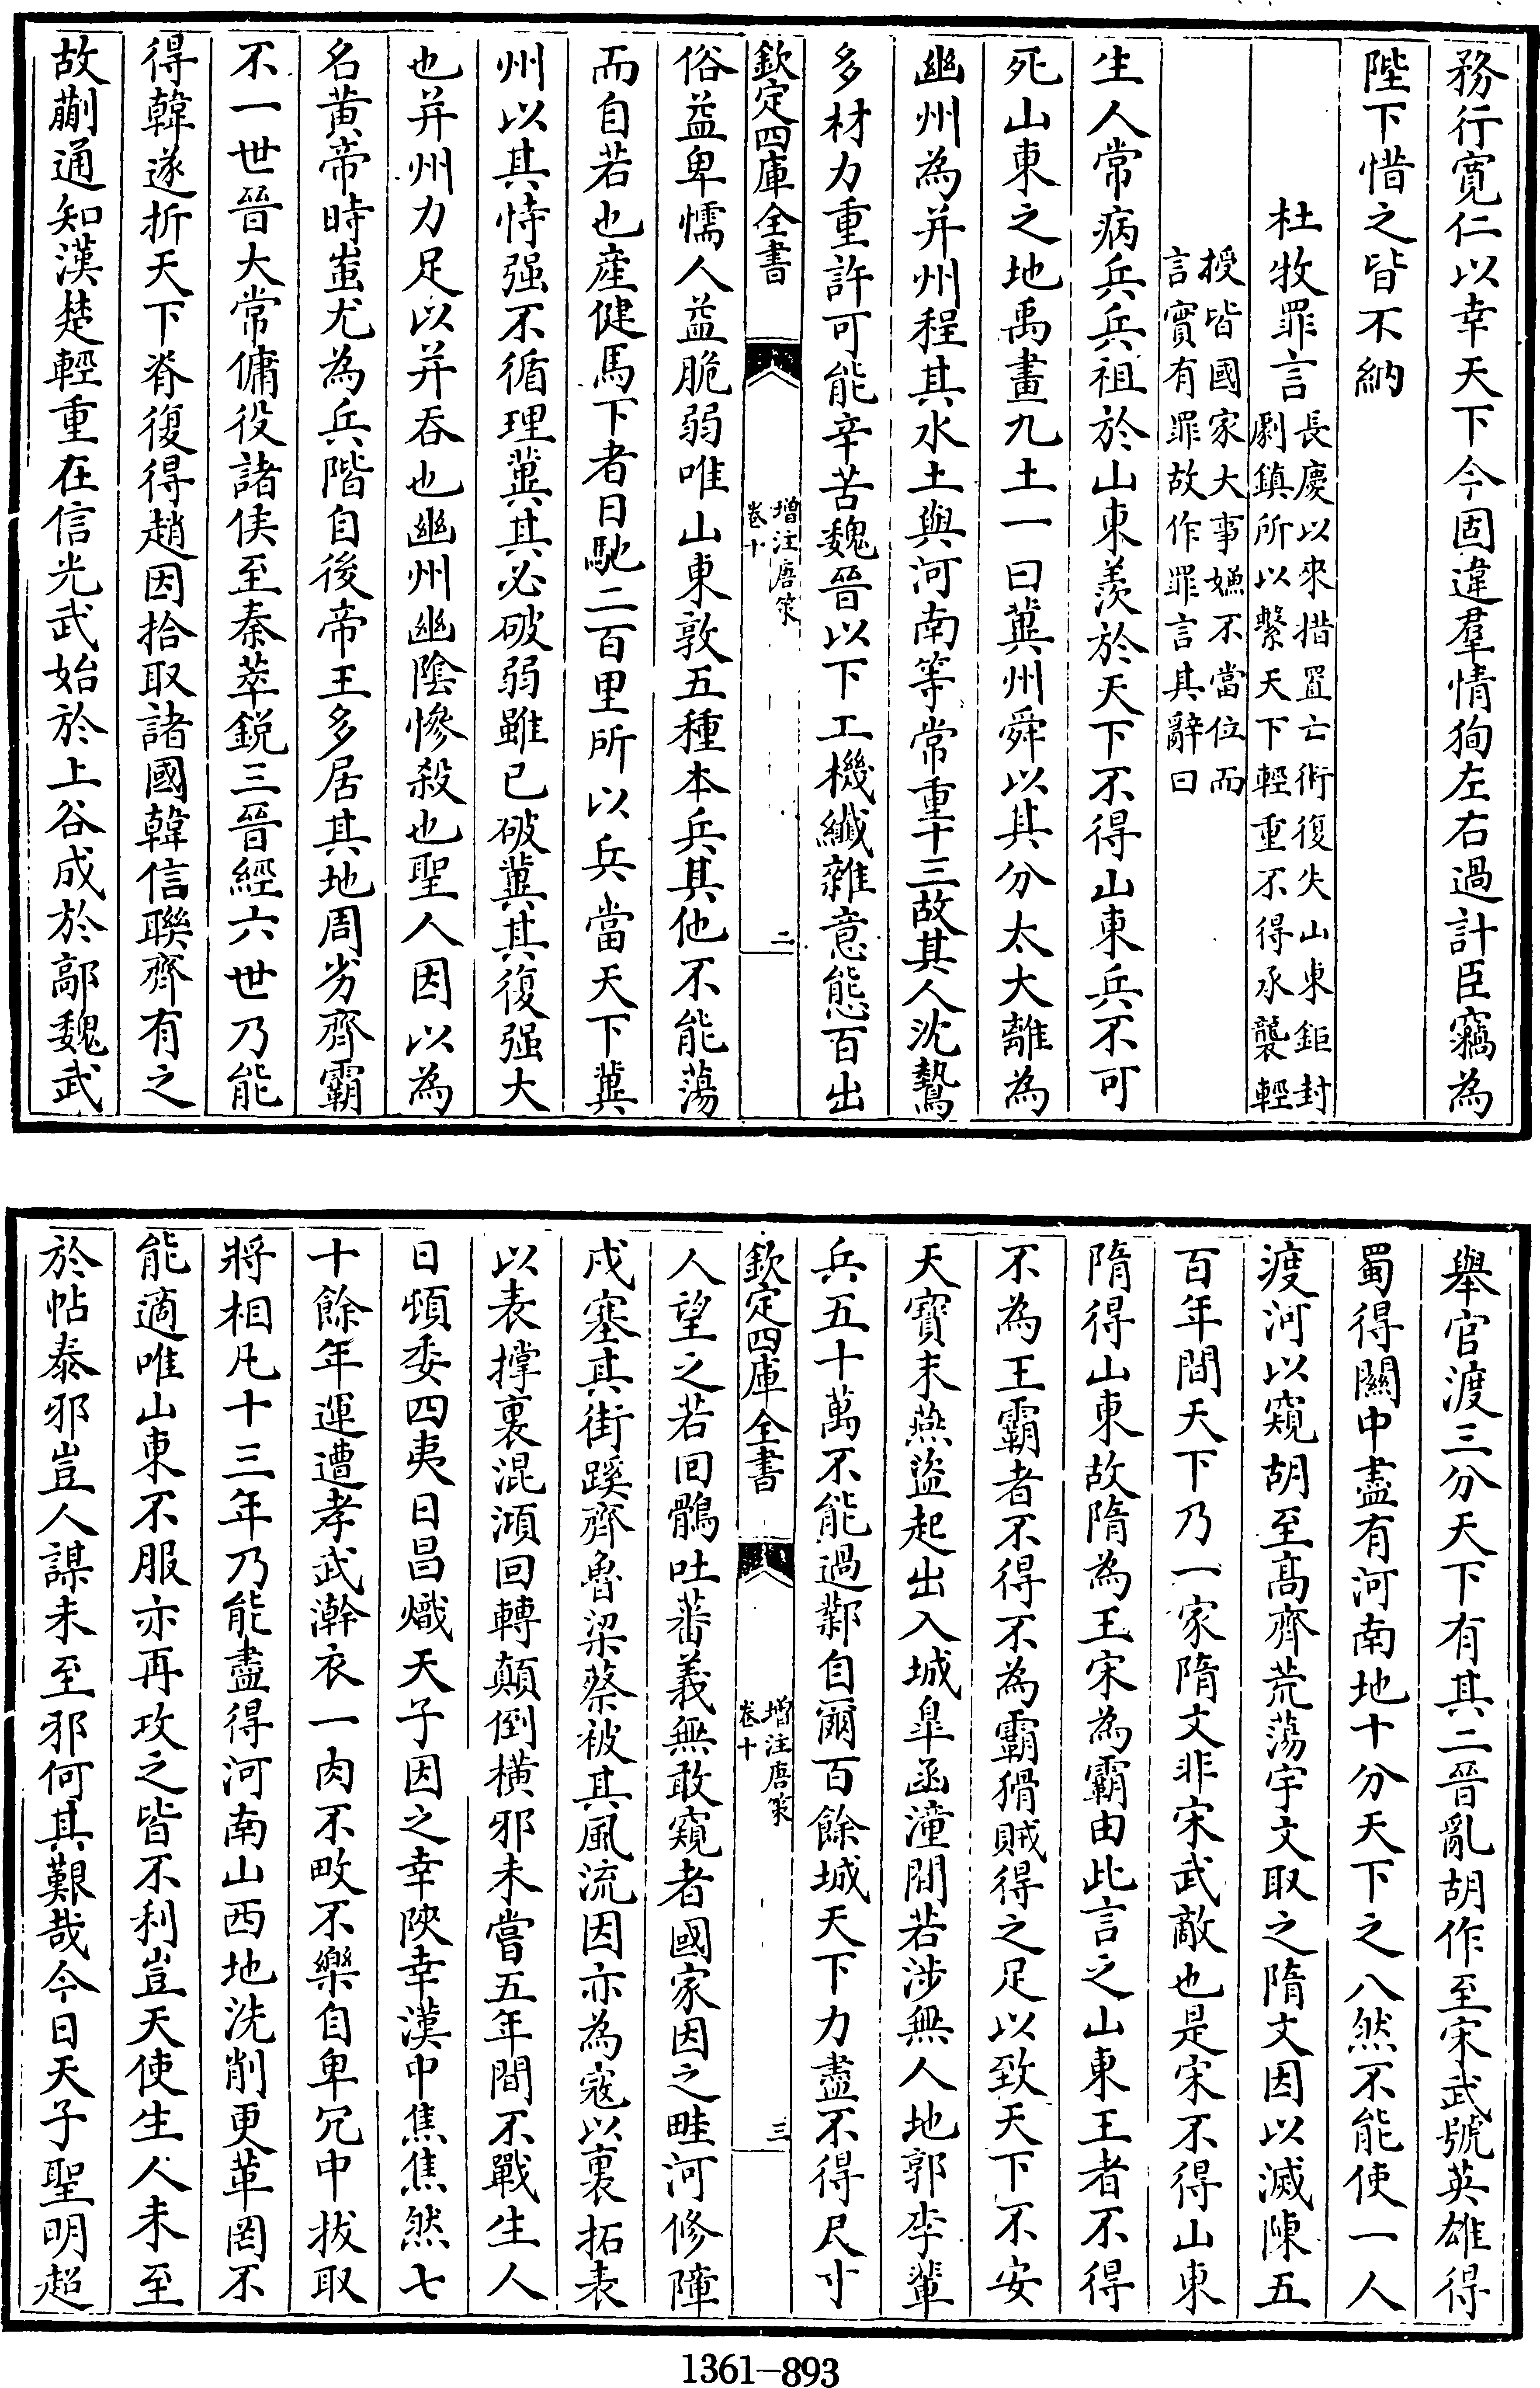 務行寛仁以幸天下今固違羣情狥左右過計臣竊為
陛下惜之皆不納
杜牧罪言長慶以來措置亡術復失山東鉅封
劇鎮所以繫天下輕重不得承襲輕
授皆國家大事嫌不當位而
言實有罪故作罪言其辭曰
生人常病兵兵祖於山東羨於天下不得山東兵不可
死山東之地禹畫九土一曰冀州舜以其分太大離為
幽州為并州程其水土與河南等常重十三故其人沈鷙
多材力重許可能辛苦魏晉以下工機纎雜意態百出
欽定四庫全書
增注唐策
卷十
二
俗益卑懦人益脆弱唯山東敦五種本兵其他不能蕩
而自若也産健馬下者日馳二百里所以兵當天下冀
州以其恃强不循理冀其必破弱雖已破冀其復强大
也并州力足以并吞也幽州幽陰慘殺也聖人因以為
名黄帝時蚩尤為兵階自後帝王多居其地周劣齊霸
不一世晉大常傭役諸侯至秦萃鋭三晉經六世乃能
得韓遂折天下脊復得趙因拾取諸國韓信聯齊有之
故蒯通知漢楚輕重在信光武始於上谷成於鄗魏武
舉官渡三分天下有其二晉亂胡作至宋武號英雄得
蜀得關中盡有河南地十分天下之八然不能使一人
渡河以窺胡至高齊荒蕩宇文取之隋文因以滅陳五
百年間天下乃一家隋文非宋武敵也是宋不得山東
隋得山東故隋為王宋為霸由此言之山東王者不得
不為王霸者不得不為霸猾賊得之足以致天下不安
天寶末燕盜起出入城臯函潼間若涉無人地郭李輩
兵五十萬不能過鄴自爾百餘城天下力盡不得尺寸
欽定四庫全書
增注唐策
卷十
三
人望之若回鶻吐蕃義無敢窺者國家因之畦河修障
戍塞其街蹊齊魯梁蔡被其風流因亦為寇以裏拓表
以表撑裏混澒回轉顛倒橫邪未嘗五年間不戰生人
日頓委四夷日昌熾天子因之幸陜幸漢中焦焦然七
十餘年運遭孝武澣衣一肉不畋不樂自卑冗中拔取
將相凡十三年乃能盡得河南山西地洗削更革罔不
能適唯山東不服亦再攻之皆不利豈天使生人未至
於帖泰邪豈人謀未至邪何其艱哉今日天子聖明超
1361-893